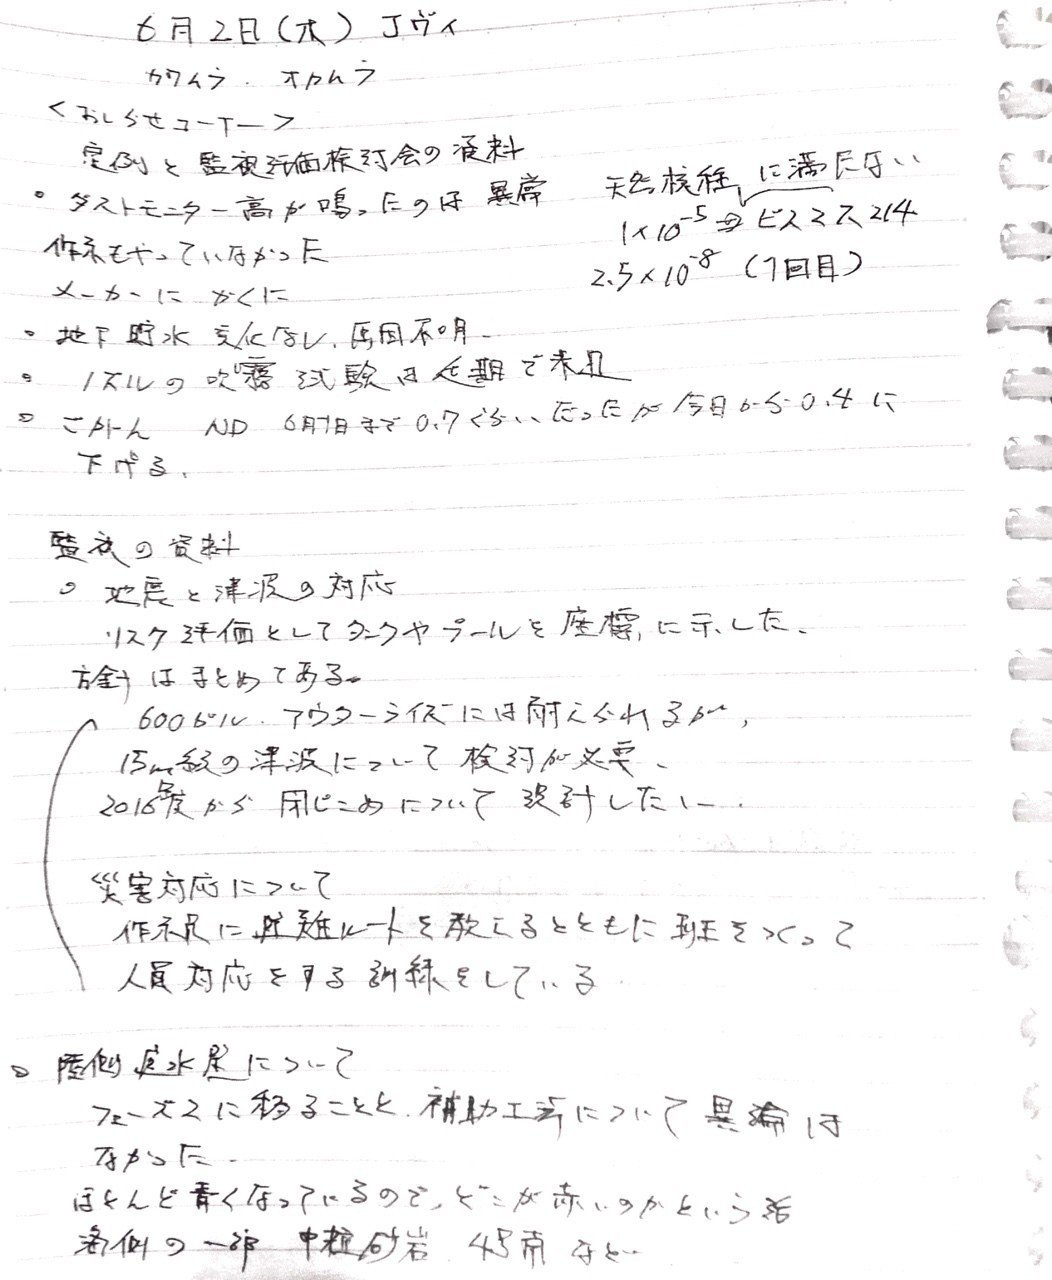 6月2日(木) Jヴィ
カワムラ. オカムラ
<おしらせコーナー>
定例と監視評価検討会の資料
・ダストモニター高が鳴ったのは異常
天然核種に満たない
1×10⁻⁵⇒ビスマス214
2.5×10⁻⁸ (1回目)
作業もやっていなかった
メーカーにかくに
・地下貯水 変化なし、原因不明.
・ノズルの噴霧試験は定期で
・ ND 6月1日まで0.7ぐらいだったが今日から0.4に
下げる.
監視の資料
・地震と津波の対応
リスク評価としてタンクやプールを座標に示した.
方針はまとめてある。
600ガル. アウターライズには耐えられるが,
15m級の津波について検討が必要.
2016年度から閉じこめについて設計したい―.
災害対応について
作業員に避難ルートを教えるとともに班をつくって
人員対応をする訓練をしている.
・陸側遮水壁について
フェーズ2に移ることと. 補助工事について異論は
なかった.
ほとんど青くなっているので、どこが赤いのかという話
海側の一部 中粒砂岩 4号南など…